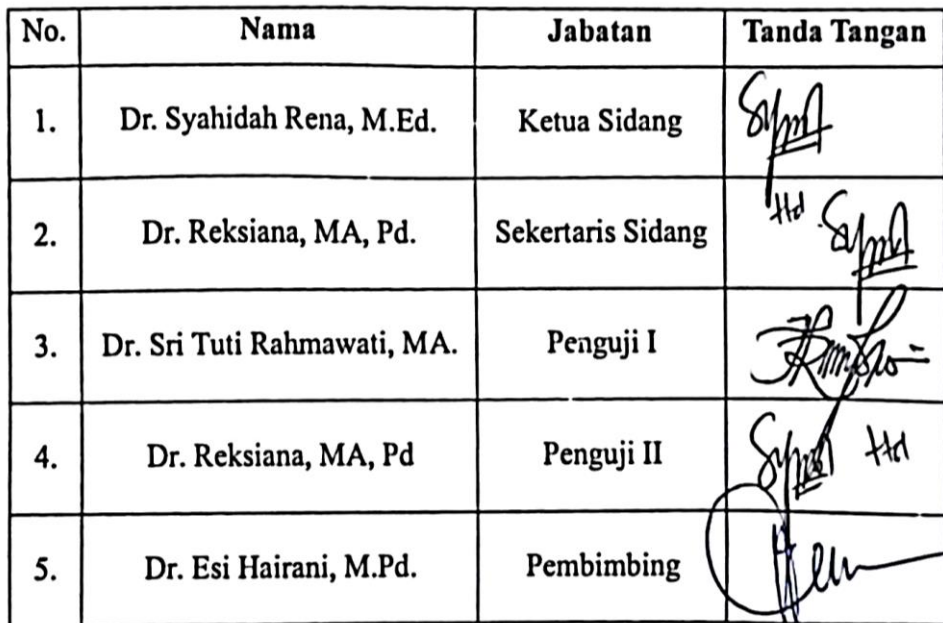 No. Nama Jabatan Tanda Tangan
1. Dr. Syahidah Rena, M.Ed. Ketua Sidang
2. Dr. Reksiana, MA, Pd. Sekertaris Sidang
3. Dr. Sri Tuti Rahmawati, MA. Penguji I
4. Dr. Reksiana, MA, Pd Penguji II
5. Dr. Esi Hairani, M.Pd. Pembimbing